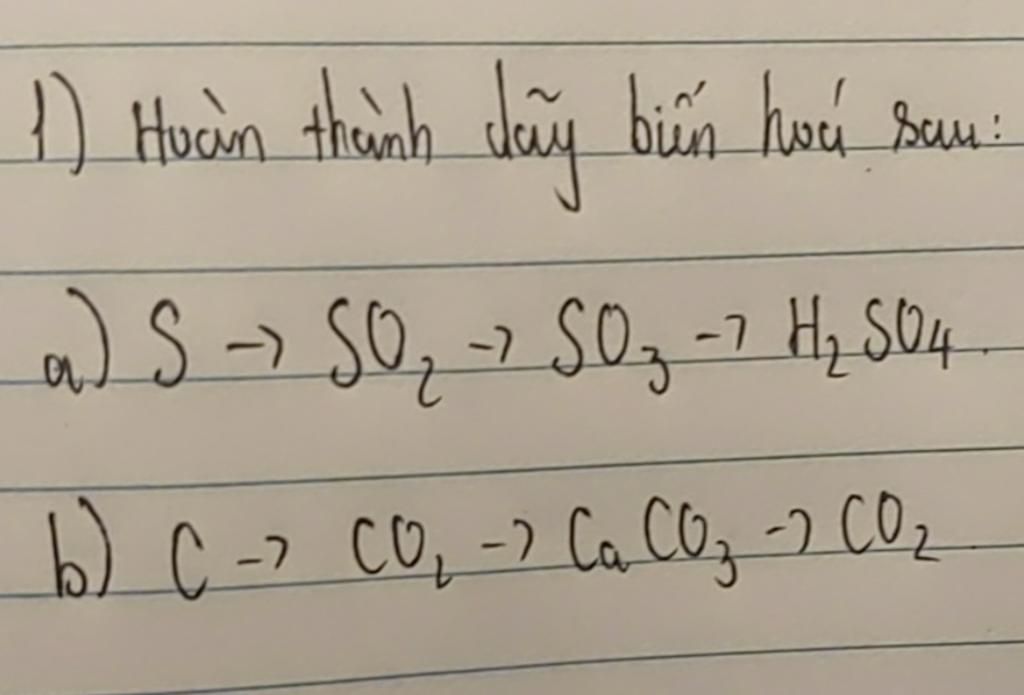 1) Hoàn thành dãy biến hoá sau:
a) S → SO₂ → SO₃ → H₂SO4.
b) C → CO₂ → CaCO₃ → CO₂